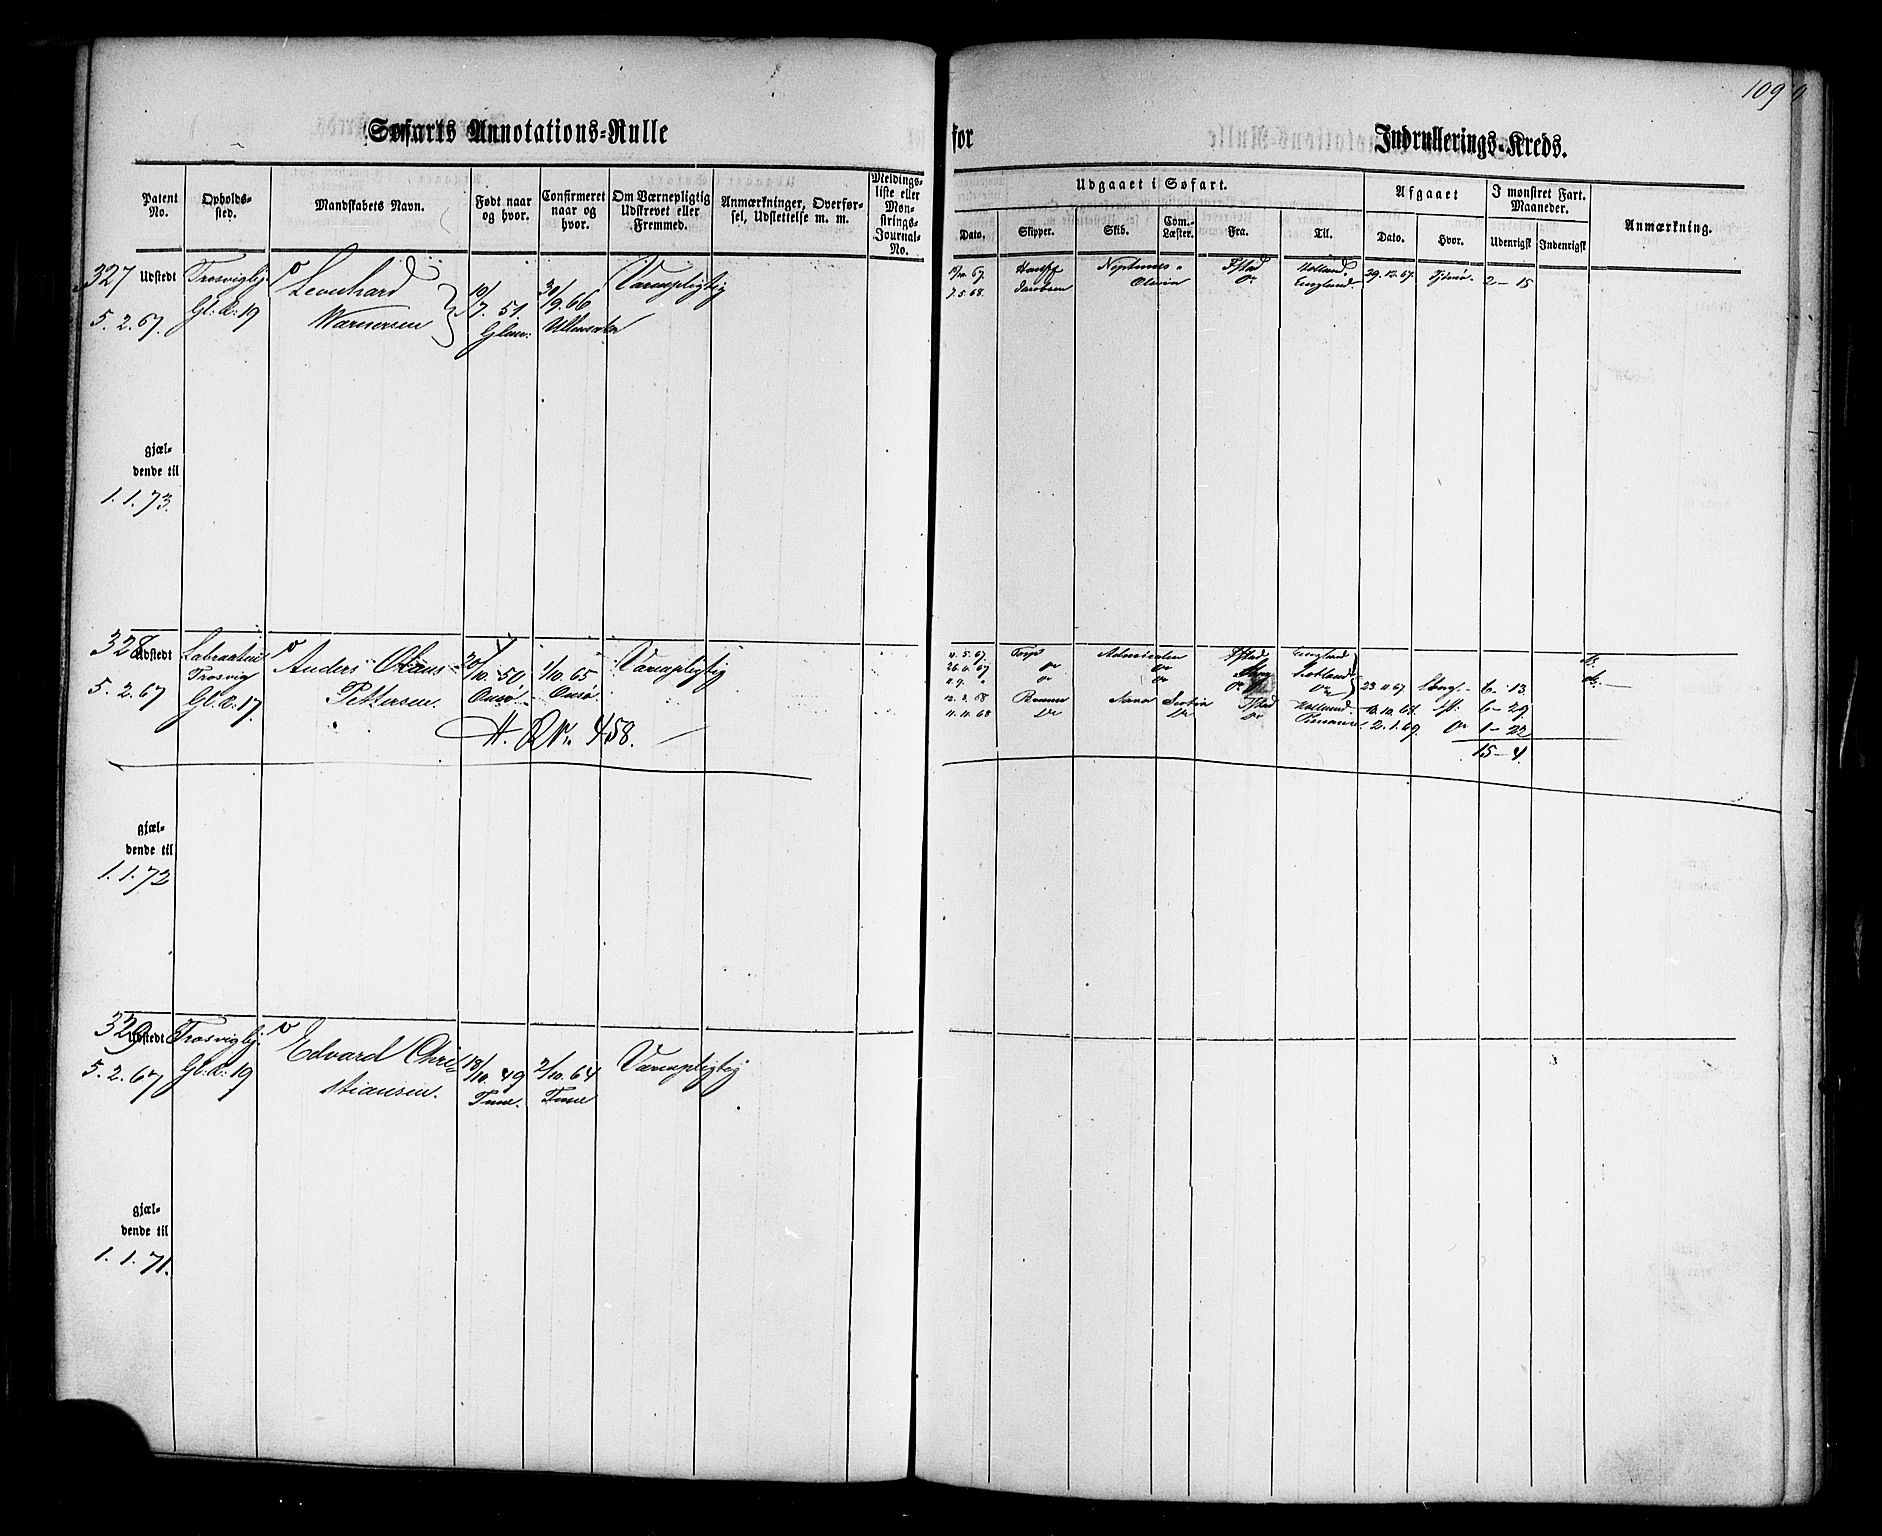 109
Søfarts Annotations-Rulle for Indrullerings-Kreds.
Patent No.
Opholds-sted.
Mandskabets Navn.
Født naar og hvor.
Confirmeret naar og hvor.
Om Værnepligtig Udskrevet eller Fremmed.
Anmærkninger, Overførsel, Udslettelse m. m.
Meldingsliste eller Mønstrings-Journal-No.
Udgaaet i Søfart.
Afgaaet
I mønstret Fart. Maaneder.
Anmærkning.
Dato.
Skipper.
Skib.
Com.-Læster.
Fra.
Til.
Dato.
Hvor.
Udenrigsk
Indenrigsk
327
Udstedt
5. 2. 67.
Trosviglj.
Gl. R. 19
Leonhard
Warnersen
10/7. 51.
Glem.
30/9. 66
Værnepligtig
67. Neptunus Fstad Holland. 29. 12. 67. Tjømø. 2 – 15
7. 5. 68. Jacobsen Olivia Do England.
gjæl-
dende til
1. 1. 73.
328
Udstedt
5. 2. 67
Trosvig
Gl. R. 17.
Anders Olaus
Pettersen.
20/10. 50
Onsø.
1/10. 65
Onsø.
Værnepligtig
H. R No. 458.
11. 5. 67. Torp Fstad England
26. 6. 67 Do Do
11. 9. Do Do Do 23. 11. 67. 6 – 13.
12. 3. 68 Fstad Holland 6 – 29.
11. 11. 68 Do Do Do 2. 1. 69. Do 1 – 22
15 – 4.
gjæl-
dende til
1. 1. 72
329
Udstedt
5. 2. 67
Trosviglj.
Gl. R. 19
Edvard Chri-
stiansen.
18/10. 49
Tune.
2/10. 64
Tune
Værnepligtig
gjæl-
dende til
1. 1. 71.